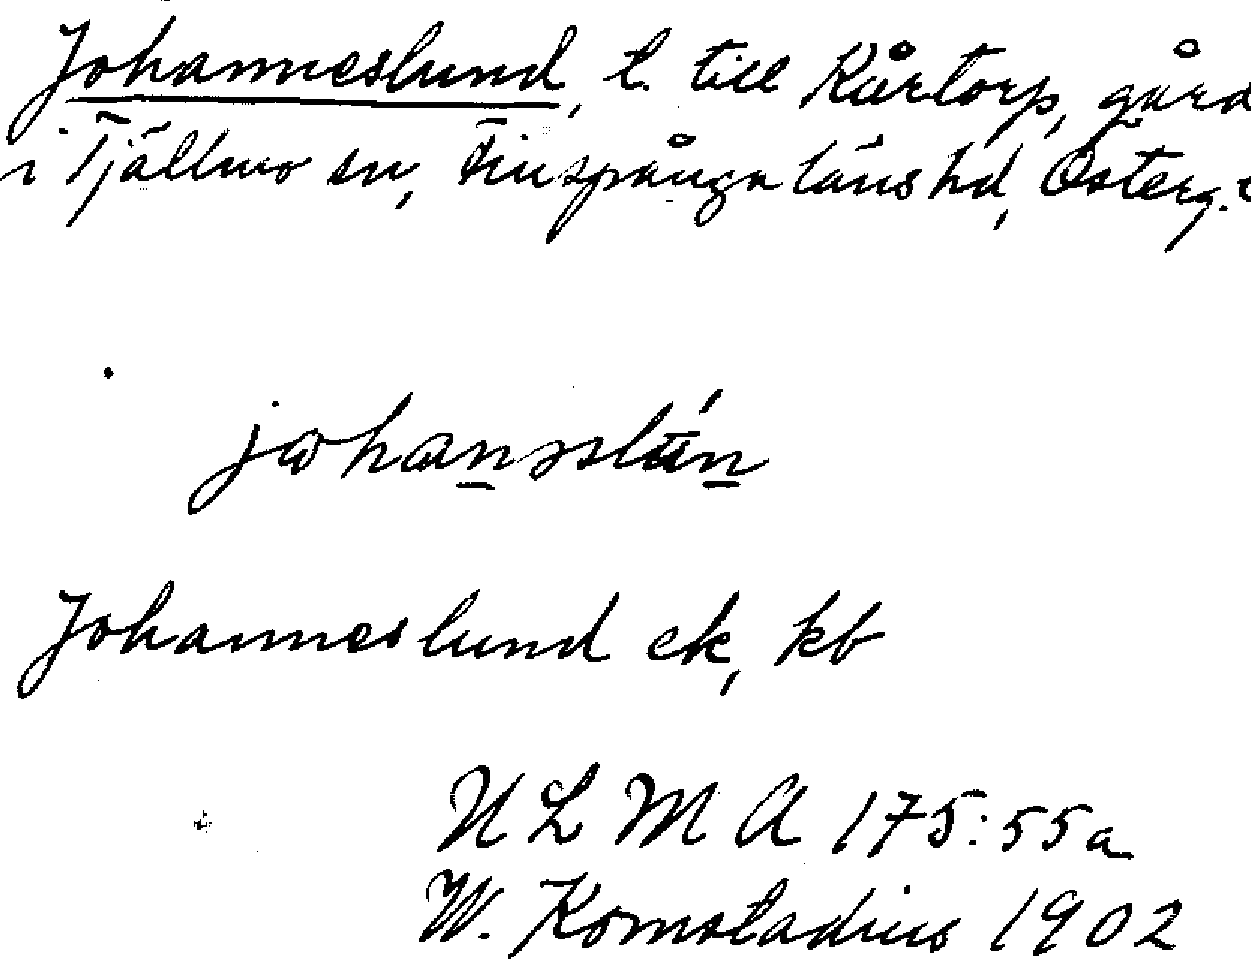 Johanneslund, t. till Kårtorp, gård
i Tjällmo sn, Finspånga läns hd, Österg.
johansslún
Johanneslund ek, kb
ULMA 175:55a
W. Komstadius 1902